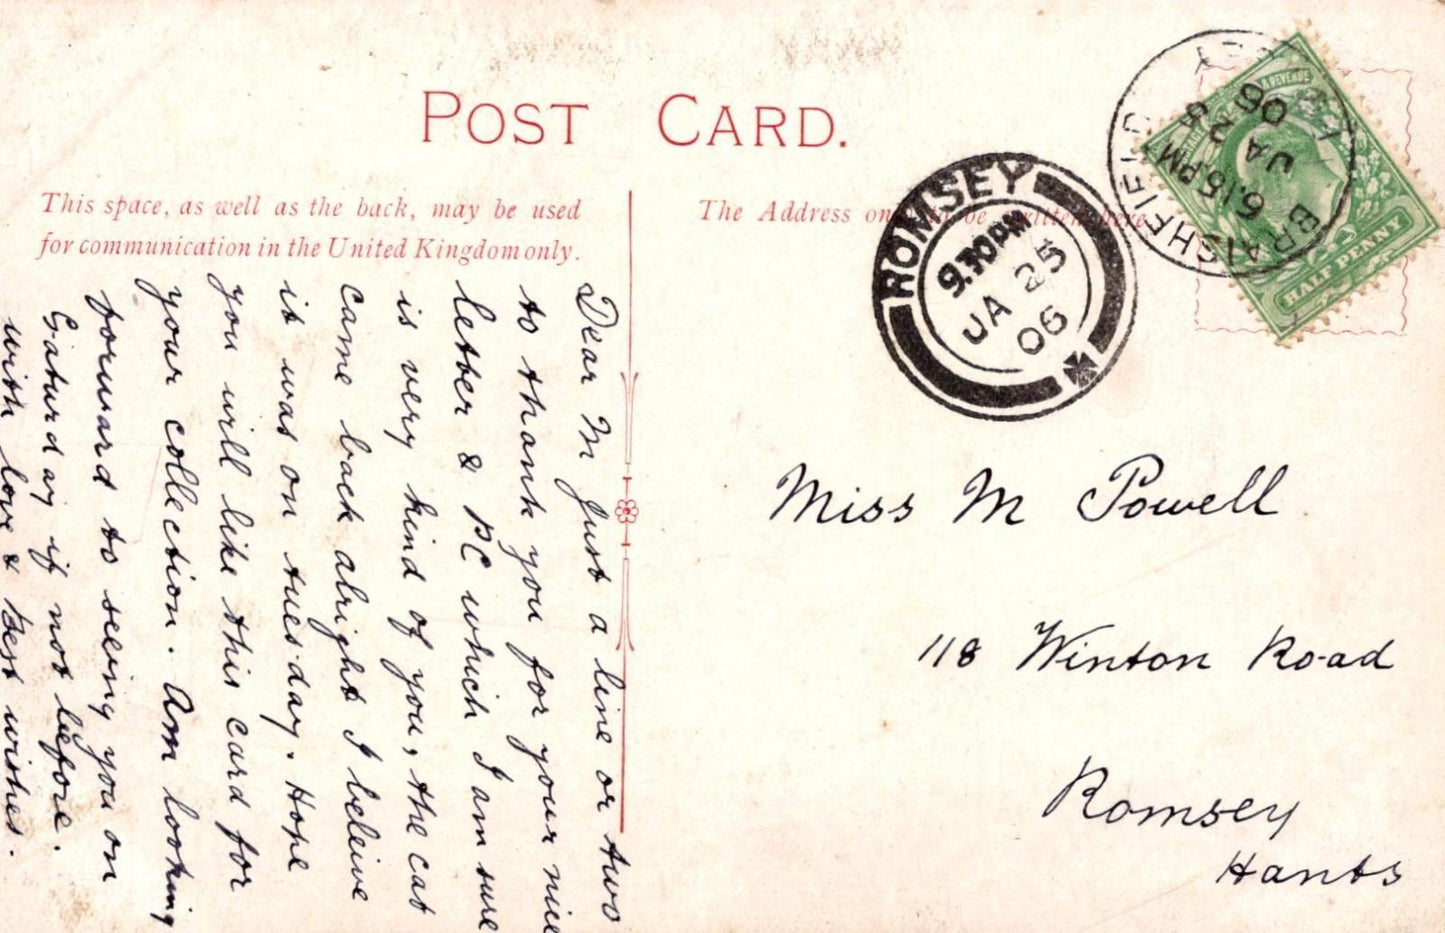 POST CARD.
This space, as well as the back, may be used
for communication in the United Kingdom only.
The Address only to be written here
ROMSEY
9.30PM
JA 25
06
BRAISHFIELD
6.15PM
JA 25
06
& REVENUE
HALF PENNY
Dear M Just a line or two
to thank you for your nice
letter & PC which I am sure
is very kind of you, the cat
came back alright I beleive
it was on tuesday. Hope
you will like this card for
your collection. Am looking
forward to seeing you on
Saturday if not before.
with love & Best wishes.
Miss M Powell
118 Winton Road
Romsey
Hants